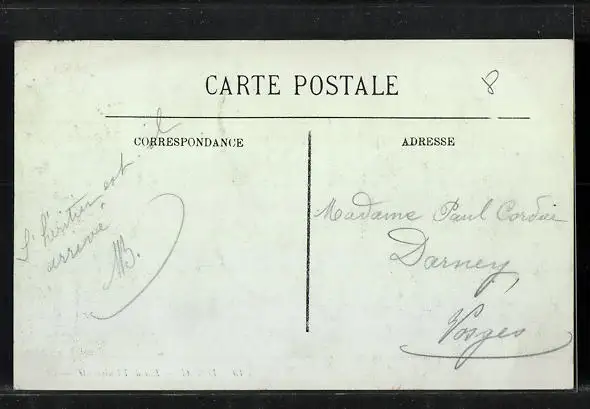 CARTE POSTALE
8
CORRESPONDANCE
ADRESSE
L'héritier est il
arrivé
MB.
Madame Paul Cordier
Darney
Vosges